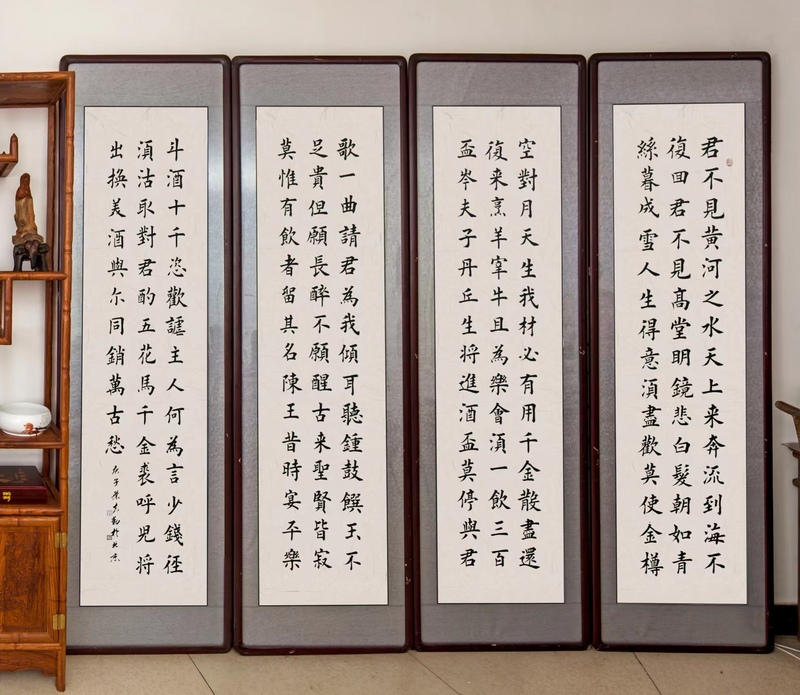 君不見黄河之水天上来奔流到海不
復回君不見髙堂明鏡悲白髮朝如青
絲暮成雪人生得意湏盡歡莫使金樽
空對月天生我材必有用千金散盡還
復来烹羊宰牛且為樂會湏一飲三百
盃岑夫子丹丘生将進酒盃莫停與君
歌一曲請君為我傾耳聽鍾鼓饌玉不
足貴但願長醉不願醒古来聖賢皆寂
莫惟有飲者留其名陳王昔時宴平樂
斗酒十千恣歡謔主人何為言少錢徑
湏沽取對君酌五花馬千金裘呼児将
出換美酒與尔同銷萬古愁